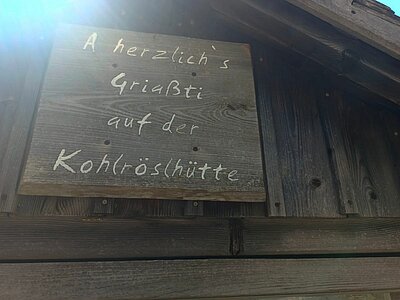 A herzlich`s
Griaßti
auf der
Kohlröslhütte